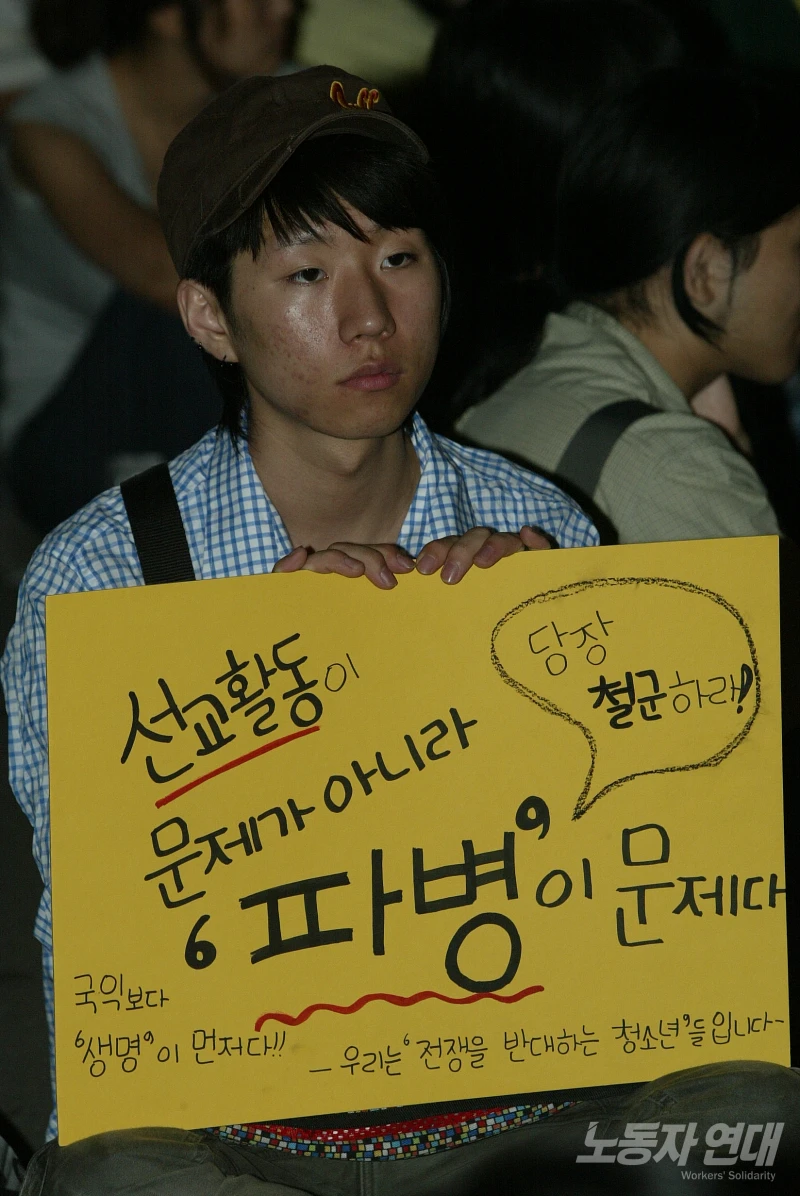 선교활동이
문제가 아니라
'파병'이 문제다
당장
철군하라!
국익보다
'생명'이 먼저다!!
- 우리는 '전쟁을 반대하는 청소년'들입니다-
노동자 연대
Workers' Solidarity